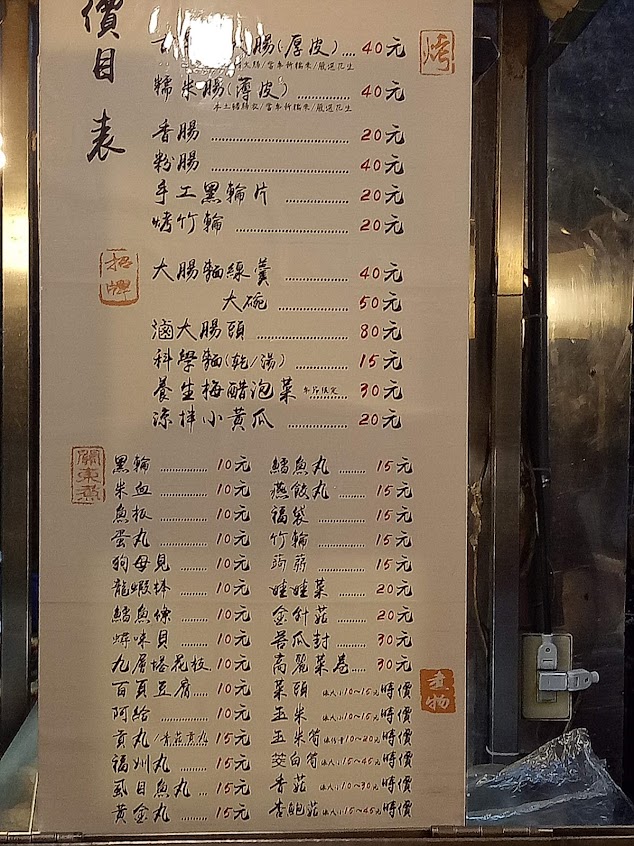 價目表
烤
大腸(厚皮) .... 40元
糯米腸(薄皮) .... 40元
本土豬腸衣/當季新糯米/嚴選花生
香腸 .... 20元
粉腸 .... 40元
手工黑輪片 .... 20元
烤竹輪 .... 20元
招牌
大腸麵線羹 .... 40元
大碗 .... 50元
滷大腸頭 .... 80元
科學麵(乾/湯) .... 15元
養生梅醋泡菜 .... 30元
涼拌小黃瓜 .... 20元
關東煮
黑輪 .... 10元
米血 .... 10元
魚板 .... 10元
蛋丸 .... 10元
狗母貝 .... 10元
龍蝦棒 .... 10元
鱈魚條 .... 10元
蟳味貝 .... 10元
九層塔花枝 10元
百頁豆腐 .... 10元
阿給 .... 10元
貢丸/香菇貢丸 15元
福州丸 .... 15元
虱目魚丸 .... 15元
黃金丸 .... 15元
鱈魚丸 .... 15元
燕餃丸 .... 15元
福袋 .... 15元
竹輪 .... 15元
蒟蒻 .... 15元
娃娃菜 .... 20元
金針菇 .... 20元
苦瓜封 .... 30元
高麗菜卷 .... 30元
產物
菜頭 10~15元時價
玉米 10~15元時價
玉米筍 10~20元時價
茭白筍 15~45元時價
香菇 10~30元時價
杏鮑菇 15~45元時價